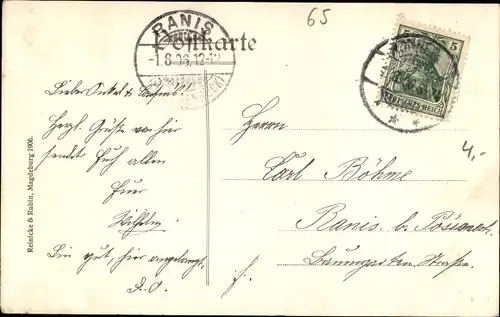 65
Postkarte
RANIS
-1.8.06.12-
5
DEUTSCHES REICH
4,-
Lieber Onkel &
Herzl. Grüße von hier
sendet Euch allen
Euer
Wilhelm.
Bin gut hier angelangt.
D. O.
Herrn
Carl Böhme
Ranis b. Pössneck.
Baumgarten Straße.
Reinicke & Rubin, Magdeburg 1906.